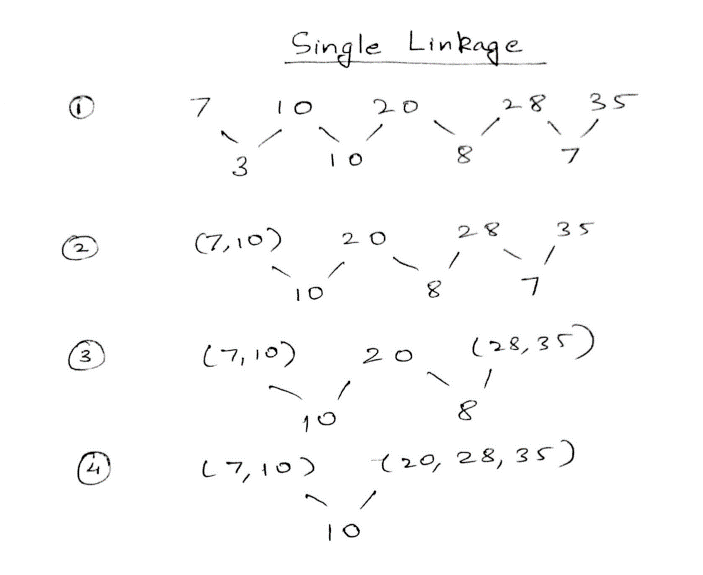 Single Linkage
① 7 10 20 28 35
3 10 8 7
② (7,10) 20 28 35
10 8 7
③ (7,10) 20 (28,35)
10 8
④ (7,10) (20, 28, 35)
10